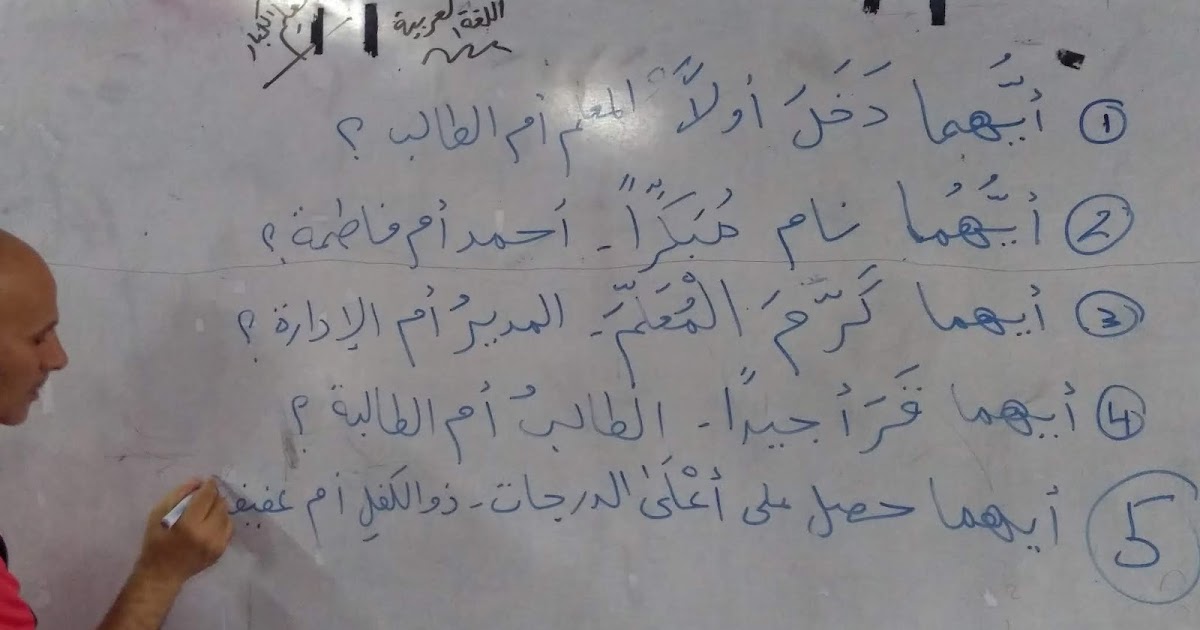 اللغة العربية
① أيُّهما دَخَلَ أولاً المعلم أم الطالب؟
② أيُّهُما نام مُبَكِّراً - أحمد أم فاطمة؟
③ أيهما كَرَّمَ الْمُعَلِّمَ - المديرُ أم الإدارة؟
④ أيهما قَرَأ جيداً - الطالبُ أم الطالبة؟
5 أيهما حصل على أعْلَىٰ الدرجات - ذو الكفلِ أم